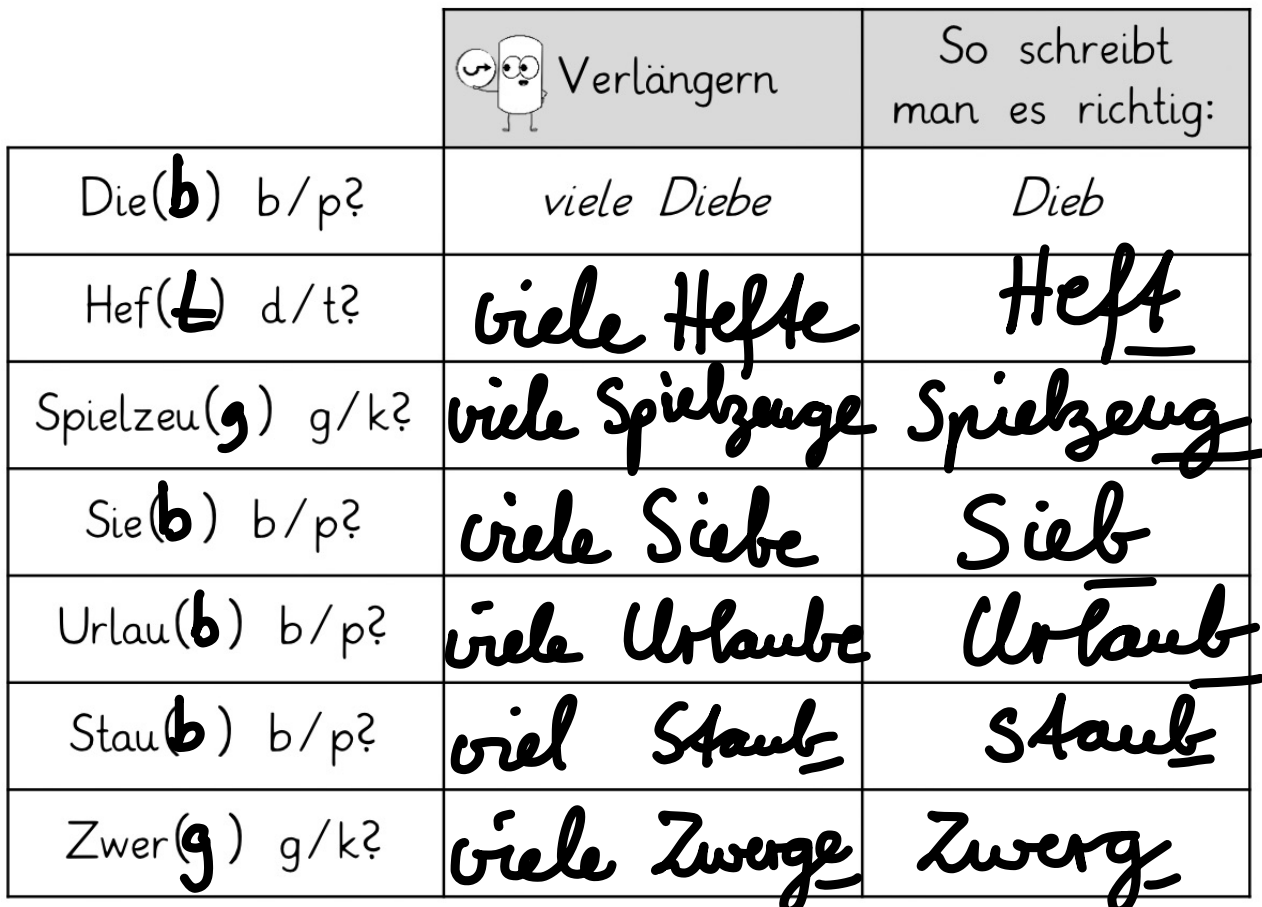 Verlängern
So schreibt
man es richtig:
Die(b) b/p? viele Diebe Dieb
Hef(t) d/t? viele Hefte Heft
Spielzeu(g) g/k? viele Spielzeuge Spielzeug
Sie(b) b/p? viele Siebe Sieb
Urlau(b) b/p? viele Urlaube Urlaub
Stau(b) b/p? viel Staub Staub
Zwer(g) g/k? viele Zwerge Zwerg